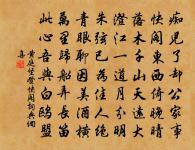 痴兒了卻公家事
快閣東西倚晚晴
落木千山天遠大
澄江一道月分明
朱弦已為佳人絕
青眼聊因美酒橫
萬里歸船弄長笛
此心吾與白鷗盟
黃庭堅登快閣詞典網